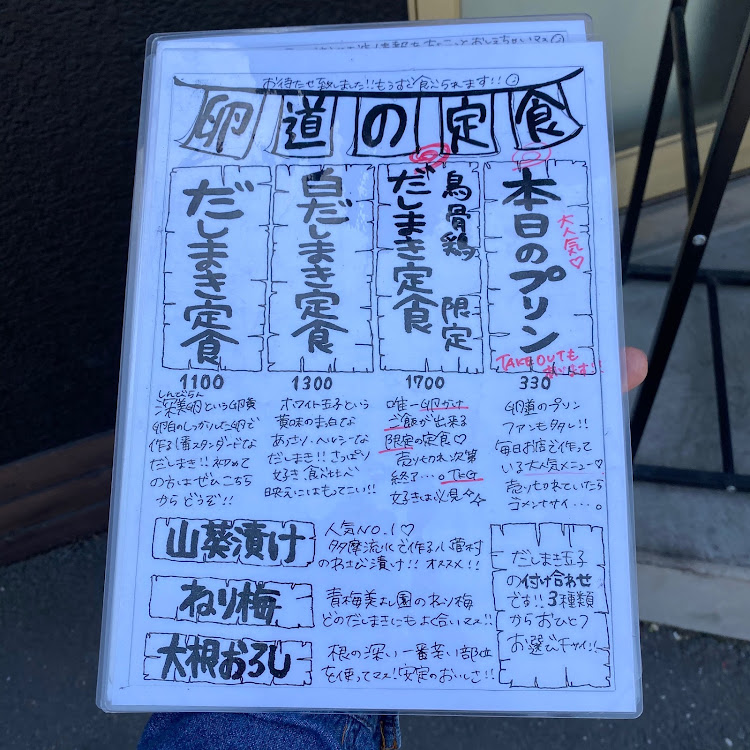 お待たせ致しました!!もうすぐ食べられます!!
卵道の定食
本日のプリン
大人気♡
TAKEOUTも
あります!!
330
卵道のプリン
ファンも多し!!
毎日お店で作って
いる大人気メニュー♡
売り切れていたら
ゴメンナサイ・・・。
烏骨鶏 限定
だしまき定食
1700
唯一卵かけ
ご飯が出来る
限定の定食♡
売り切れ次第
終了・・・。TKG
好きは必見
白だしまき定食
1300
ホワイト玉子という
黄味のま白な
あっさりヘルシーな
だしまき!!さっぱり
好き、食べ比べ
映えにはもってこい!!
だしまき定食
1100
しんびらん
深美卵という卵黄
卵白のしっかりした卵で
作る1番スタンダードな
だしまき!!初めて
の方はぜひこちら
からどうぞ!!
山葵漬け
人気NO.1♡
多摩流水で作る小菅村
のわさび漬け!!オススメ!!
ねり梅
青梅美よし園のねり梅
どのだしまきにもよく合いマス!!
大根おろし
根の深い一番辛い部位
を使ってマス!安定のおいしさ!!
だしまき玉子
の付け合わせ
です!!3種類
からおひとつ
お選び下サイ!!